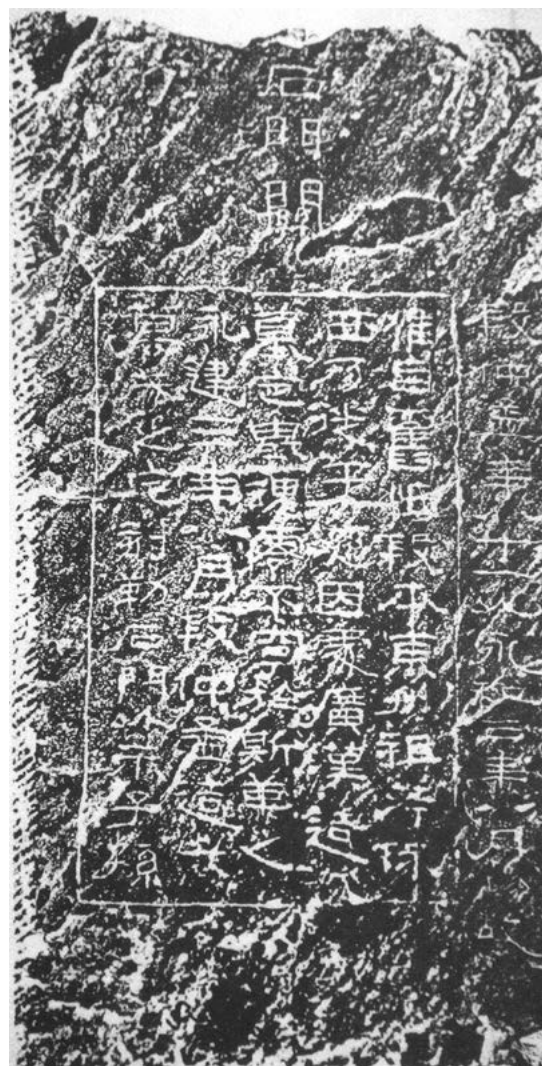 石門關
段仲孟年八十一以永和三年八月
惟自舊昔段本東州祖考徠
西乃徙于慈因處廣漢造
墓定基魂零不寧於斯革之
永建三年八月段仲孟造此
萬歲之宅刻勒石門以示子孫